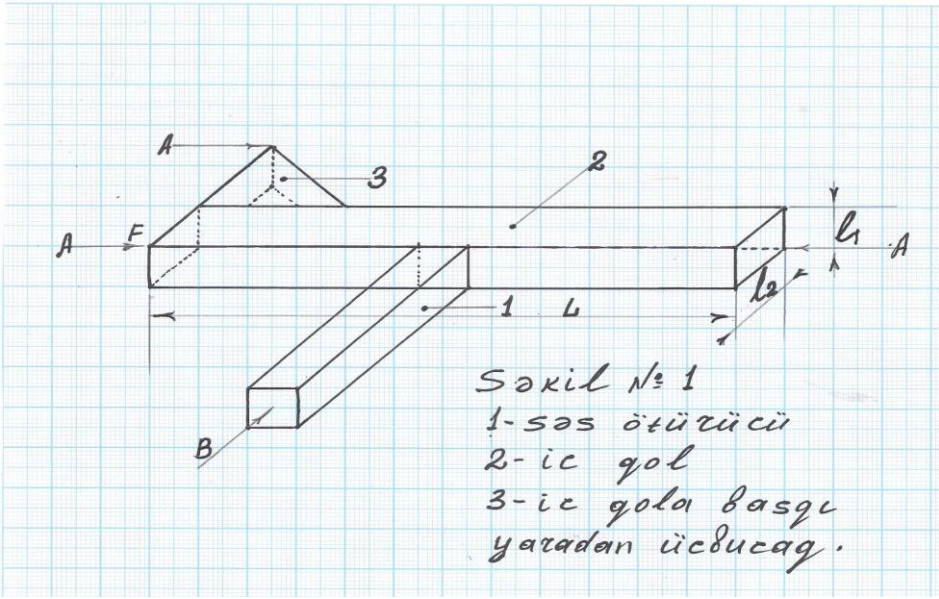 A
3
2
F
A
l1
A
l2
1
L
B
Səkil № 1
1- səs ötürücü
2- ic qol
3- ic qola basqı
yaradan ücbucaq.